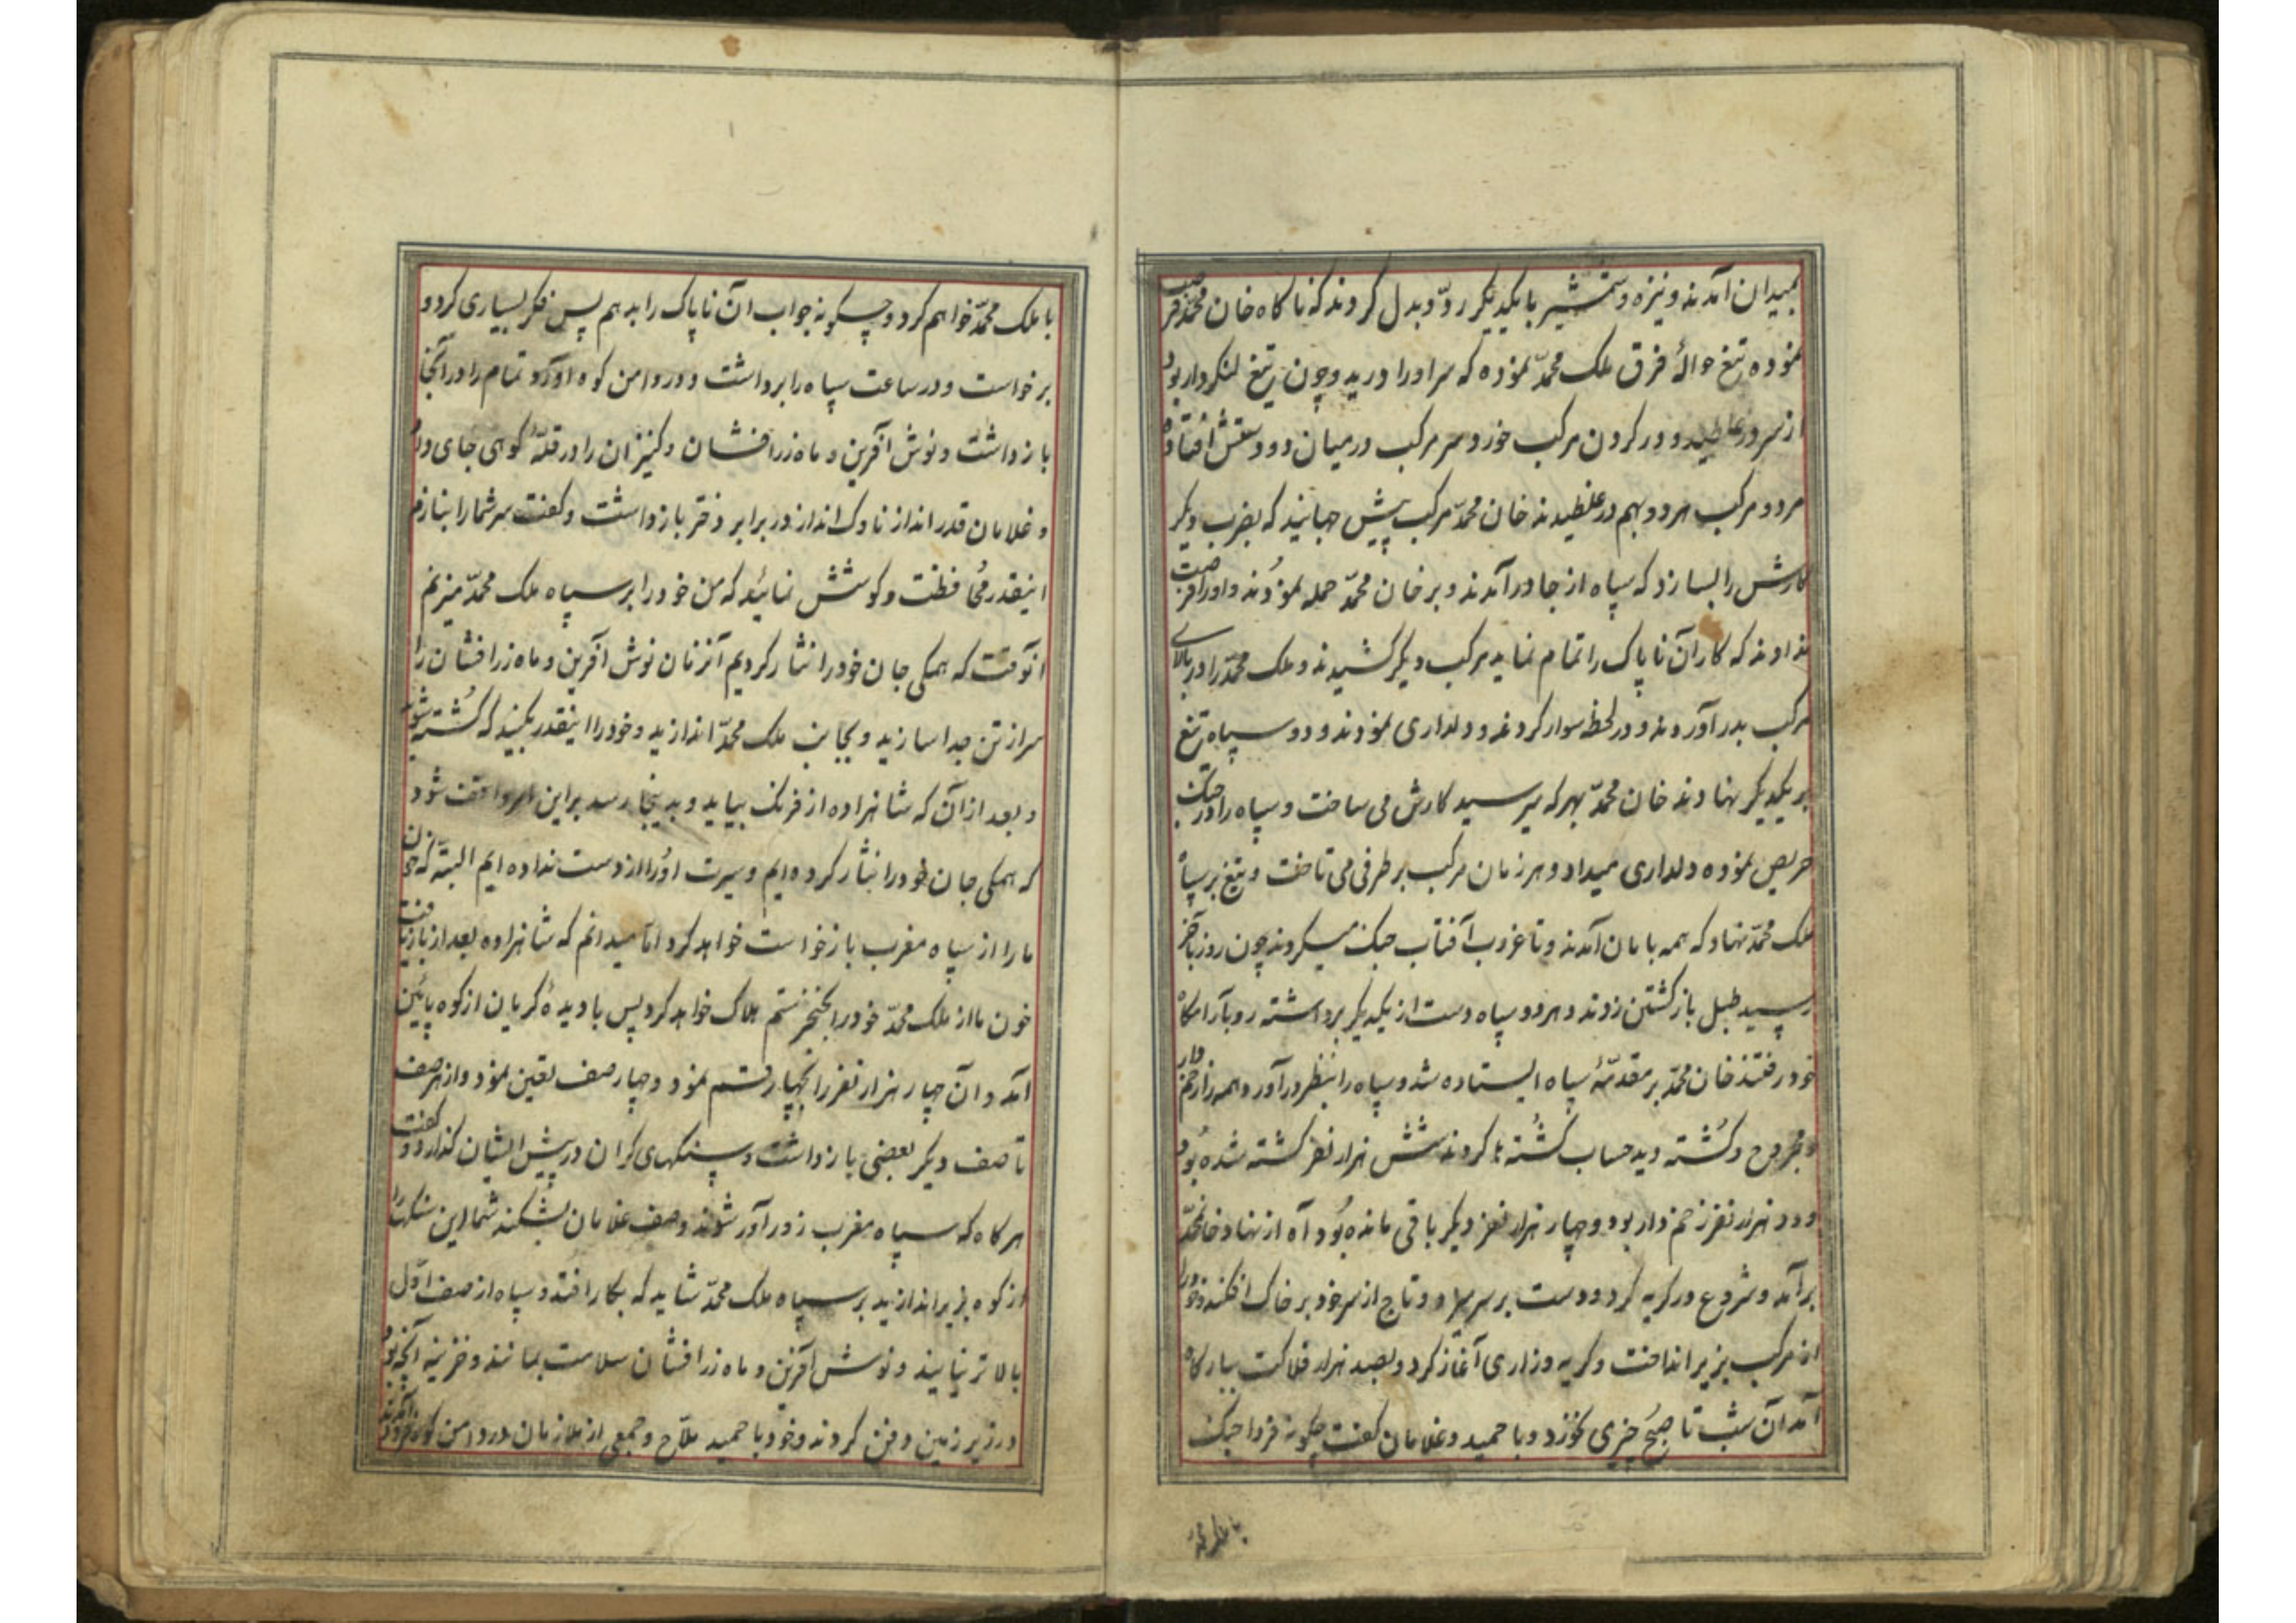 بمیدان آمدند و نیزه و شمشیر با یکدیگر ردّ و بدل کردند که ناکاه خان محمّد فرصت
نموده تیغ حوالهٔ فرق ملک محمّد نموده که سر اورا درید و چون تیغ لنکردار بود
از سر در غلطید و در کردن مرکب خورد و سر مرکب در میان دو دستش افتاد
مرد و مرکب هر دو بهم در غلطیدند خان محمّد مرکب پیش جهانید که بضرب دیکر
کارش را بسازد که سپاه از جا در آمدند و بر خان محمّد حمله نمودند و اورا فرصت
ندادند که کار آن ناپاک را تمام نماید مرکب دیکر کشیدند و ملک محمّد را در بالای
مرکب بدر آوردند و در لحظه سوار کردند و دلداری نمودند و دو سپاه تیغ
بر یکدیکر نهادند خان محمّد بهر که میرسید کارش می ساخت و سپاه را در جنک
حریص نموده دلداری میداد و هر زمان مرکب بر طرفی می تاخت و تیغ بر سپاه
ملک محمّد نهاد که همه بامان آمدند و تا غروب آفتاب جنک میکردند چون روز بآخر
رسید طبل بازکشتن زدند و هر دو سپاه دست از یکدیکر برداشته رو بآرامکاه
خود رفتند خان محمّد بر مقدّمهٔ سپاه ایستاده شد و سپاه را بنظر در آورد همه را زخم دار
و مجروح و کُشته دید حساب کُشته ها کردند شش هزار نفر کشته شده بود
و دو هزار نفر زخم دار بود و چهار هزار نفر دیکر باقی مانده بُود آه از نهاد خانمحمّد
بر آمد و شروع در کریه کرد و دست بر سر زد و تاج از سر خود بر خاک افکند و خود را
از مرکب بزیر انداخت و کریه و زاری آغاز کرد و بصد هزار فلاکت ببارکاه
آمد آن شب تا صبح چیزی نخورد و با حمید و غلامان کفت چکونه فردا جنک
با ملک محمّد
با ملک محمّد خواهم کرد و چکونه جواب آن ناپاک را بدهم پس فکر بسیاری کرد و
برخواست و در ساعت سپاه را برداشت و در دامن کوه آورد و تمام را در آنجا
باز داشت و نوش آفرین و ماه زرافشان و کنیزان را در قلّهٔ کوهی جای داد
و غلامان قدر انداز ناوک انداز در برابر دختر باز داشت و کفت سر شما را بنازم
اینقدر مُحافظت و کوشش نمائید که من خود را بر سپاه ملک محمّد میزنم
آنوقت که همکی جان خود را نثار کردیم آنزمان نوش آفرین و ماه زرافشان را
سر از تن جدا سازید و بجانب ملک محمّد اندازید و خود را اینقدر بکنید که کُشته شوید
و بعد از آن که شاهزاده از فرنک بیاید و بدینجا رسد بر این امر واقف شود
که همکی جان خود را نثار کرده ایم و سیرت اورا از دست نداده ایم البتّه که خون
ما را از سپاه مغرب بازخواست خواهد کرد امّا میدانم که شاهزاده بعد از بازیافت
خون ما از ملک محمّد خود را بخنجر ستم هلاک خواهد کرد پس با دیدهٔ کریان از کوه پائین
آمد و آن چهار هزار نفر را بچهار قسم نمود و چهار صف تعین نمود و از هر صف
تا صف دیکر بعضی باز داشت و سنکهای کران در پیش ایشان کذارد و کفت
هر کاه که سپاه مغرب زور آور شوند و صف غلامان بشکنند شما این سنکها را
از کوه بزیر اندازید بر سپاه ملک محمّد شاید که بکار افتد و سپاه از صف اوّل
بالاتر نیایند و نوش آفرین و ماه زرافشان سلامت بمانند و خزینه آنچه بود
در زیر زمین دفن کردند و خود با حمید ملّاح و جمعی از ملازمان در دامن کوه فرود آمدند